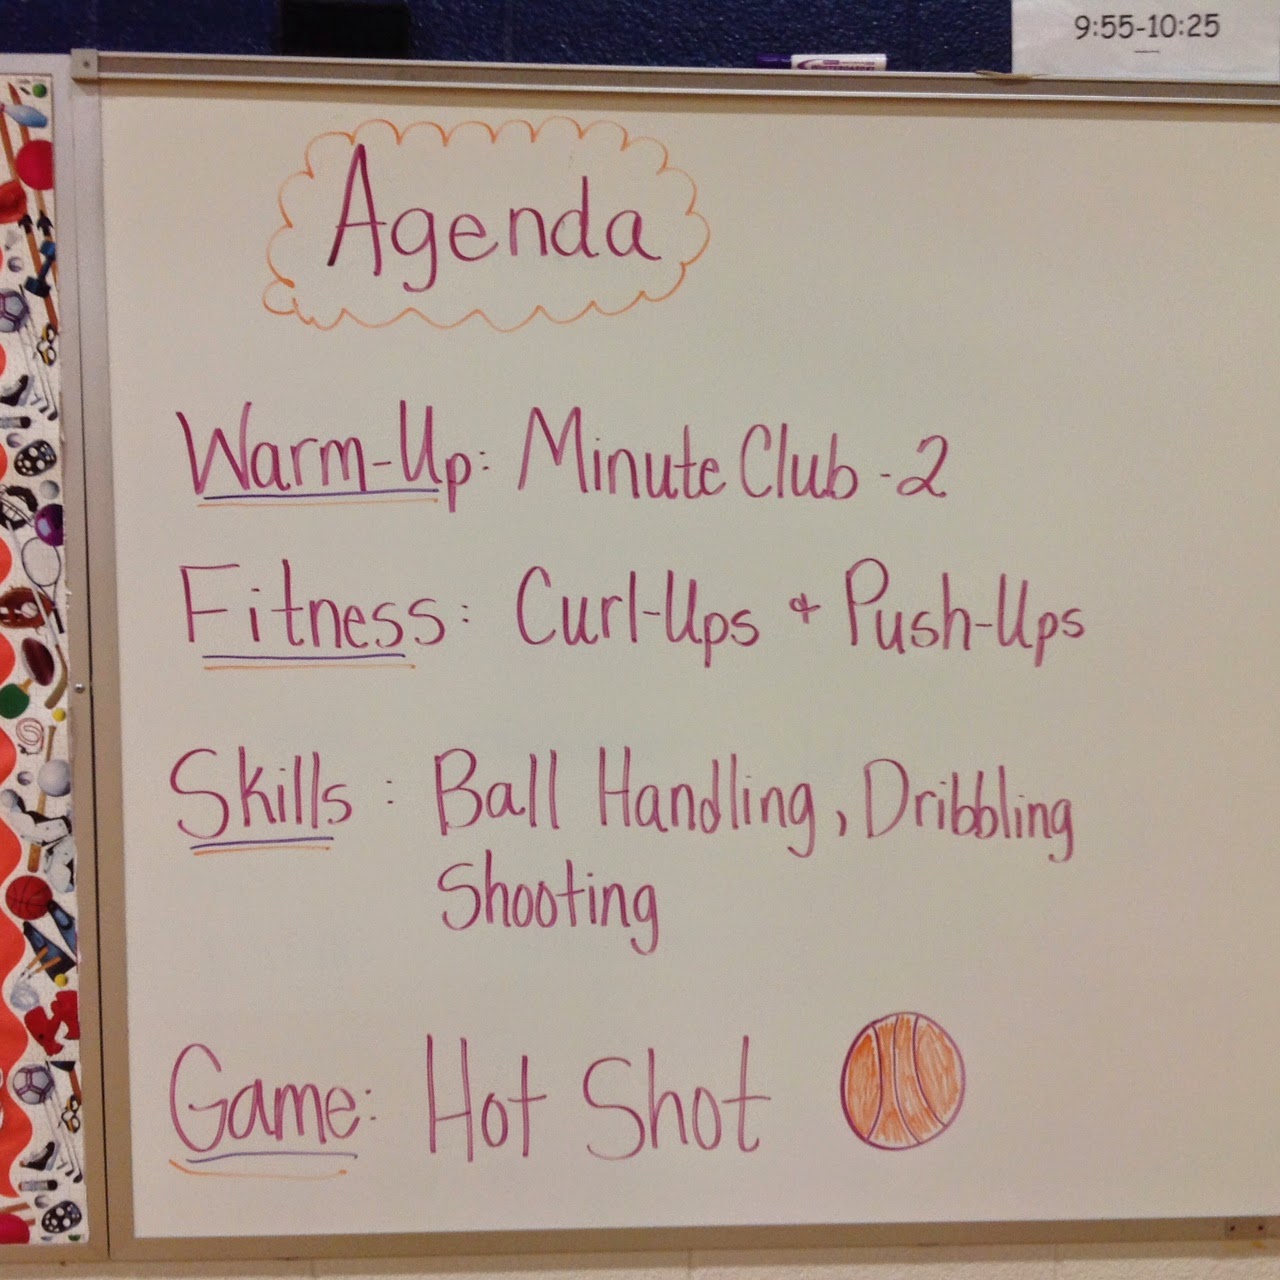 9:55-10:25
Agenda
Warm-Up: Minute Club -2
Fitness: Curl-Ups & Push-Ups
Skills: Ball Handling, Dribbling
Shooting
Game: Hot Shot